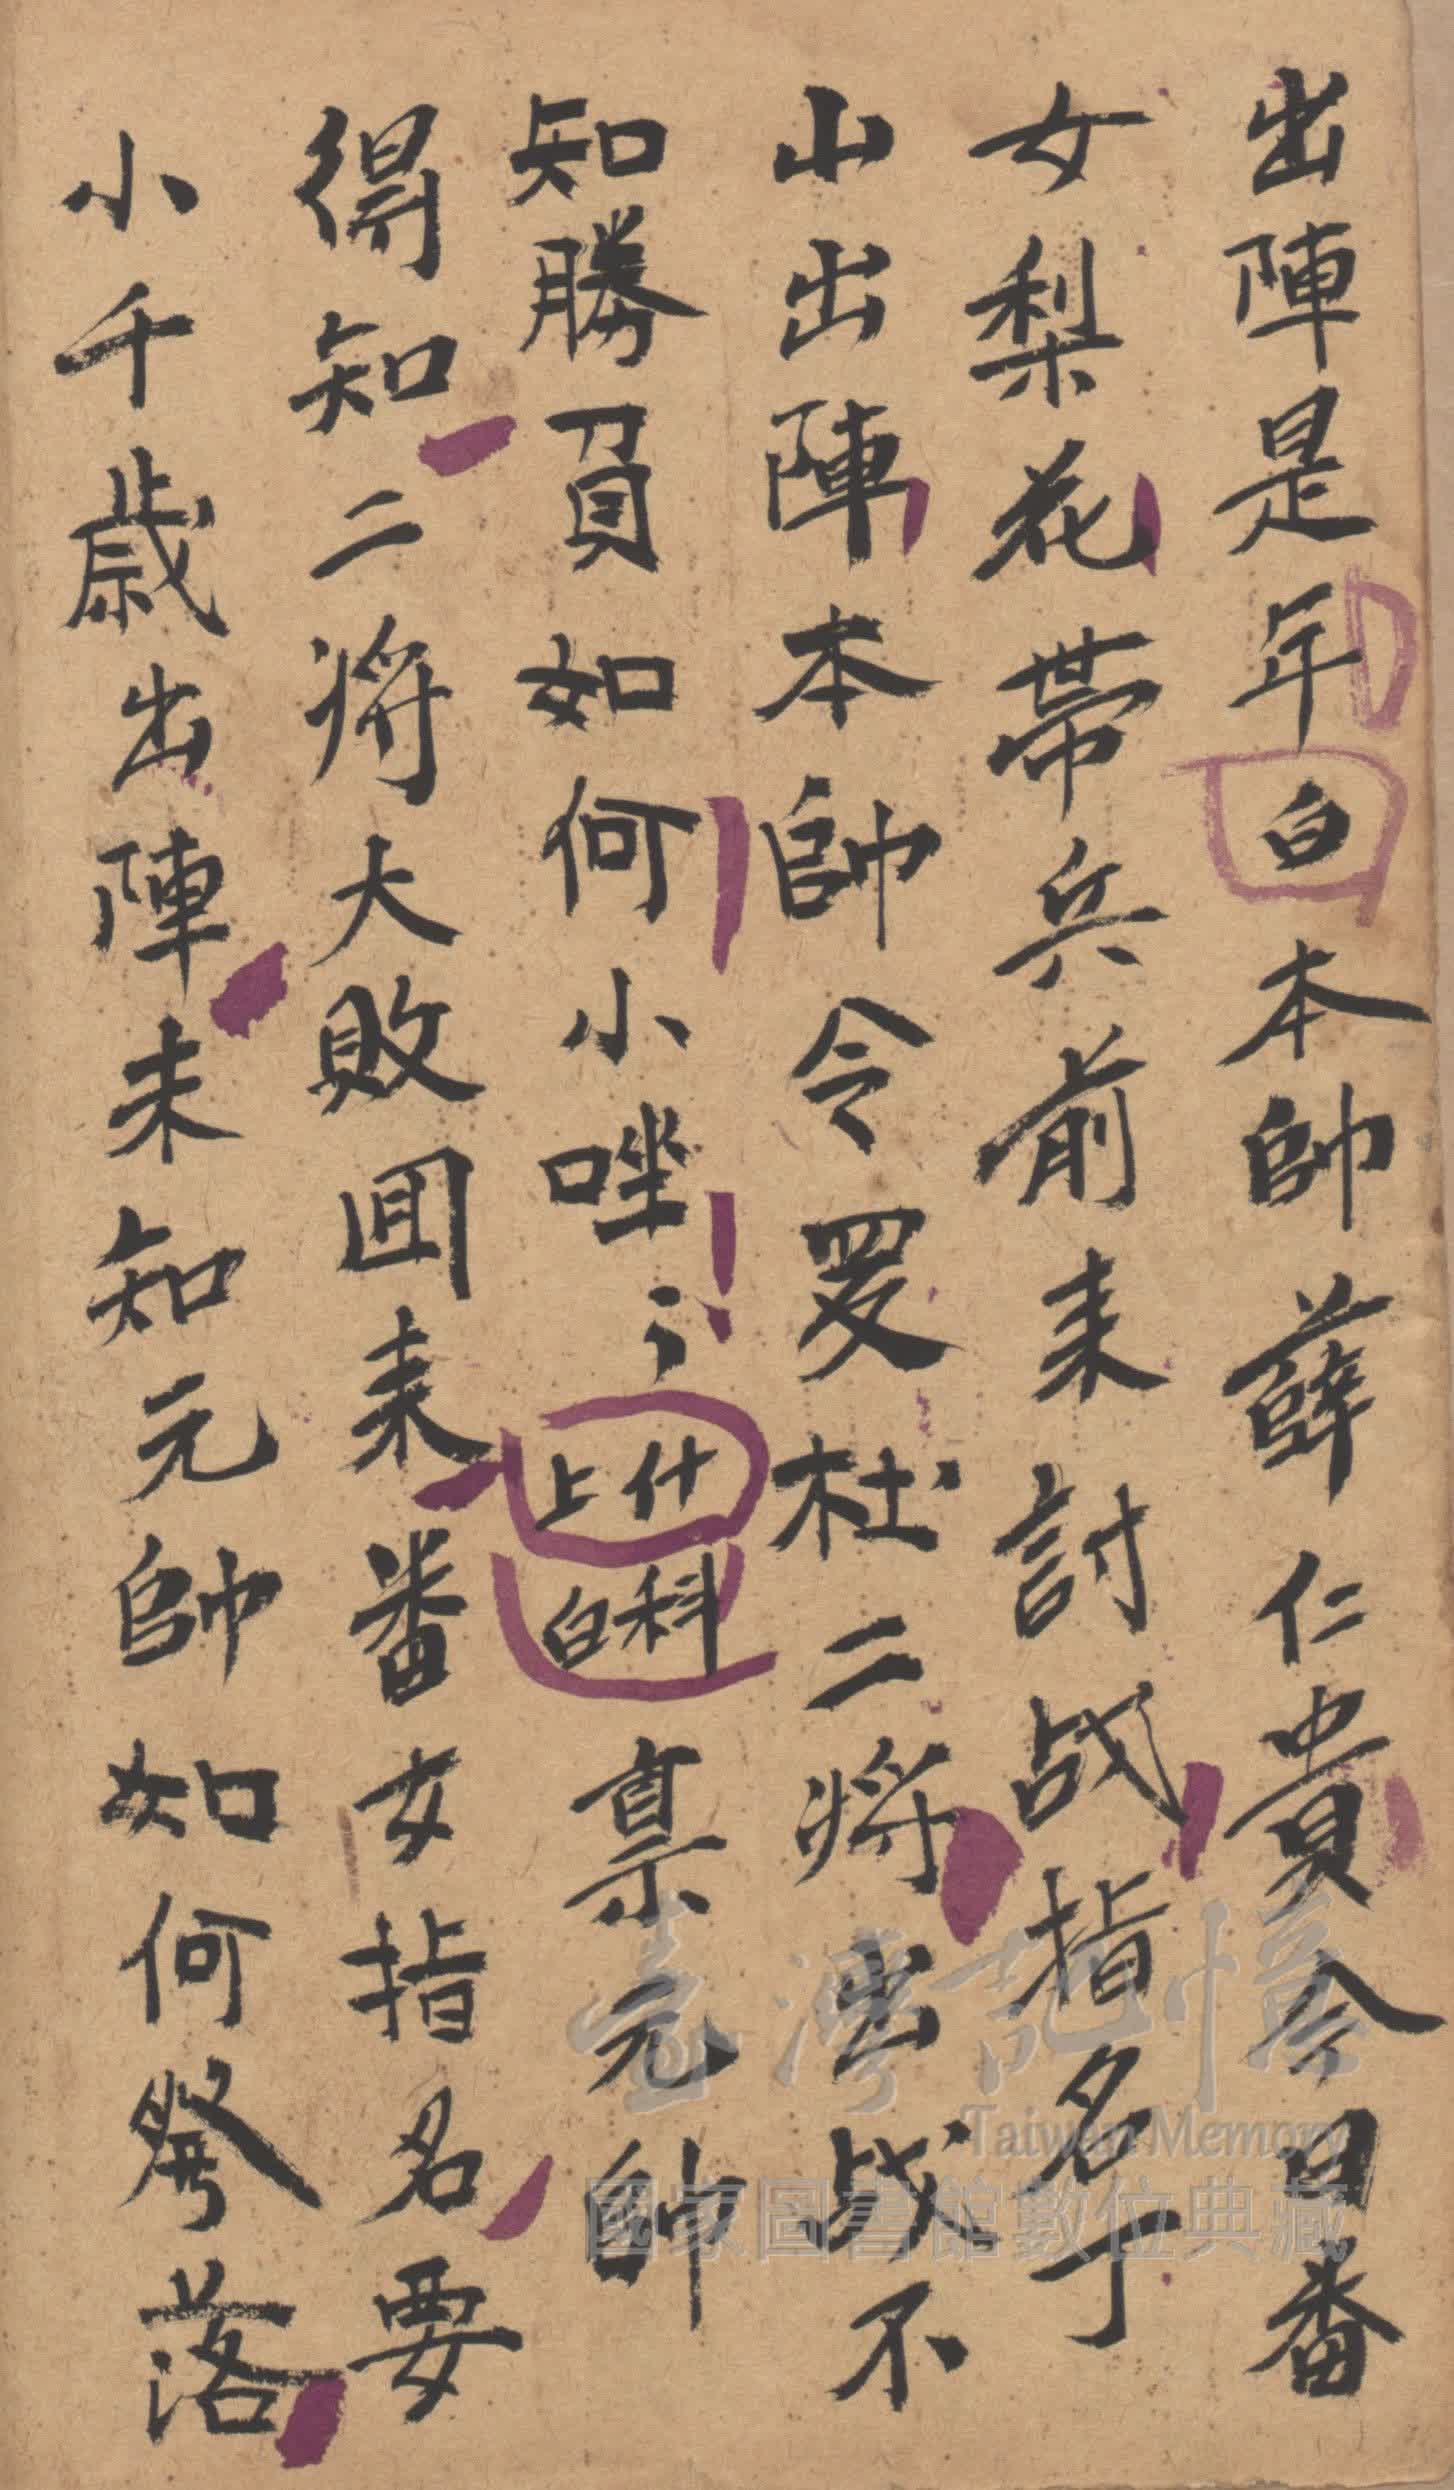 出陣是年白本帥薛仁貴今日番
女梨花帶兵前来討战指名丁
山出陣本帥令罗杜二将出战不
知勝負如何小唑〻什上科白禀元帥
得知二将大敗囬来番女指名要
小千歳出陣未知元帥如何發落
臺灣記憶
Taiwan Memory
國家圖書館數位典藏